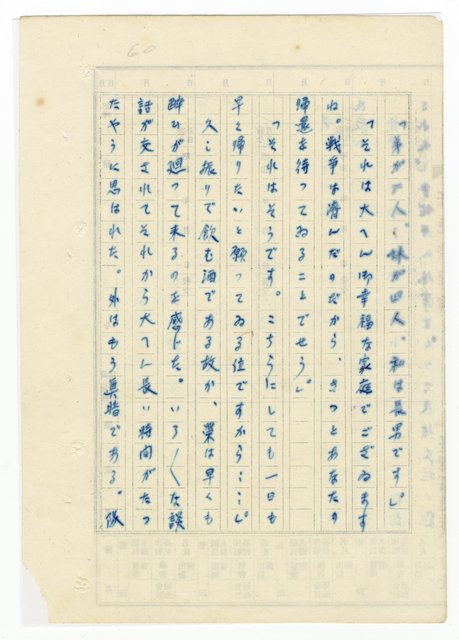 60
「弟が二人、妹が四人、私は長男です」。
「それは大へん御幸福な家庭でございゐます
ね。戦争は済んだのだから、きつとあなたの
帰還を待つてゐることでせう」。
「それはそうです。こちらにしても一日も
早く帰りたいと願つてゐる位ですから……」。
久し振りで飲む酒である故か、葉は早くも
酔ひが廻つて来るのを感じた。いろ〱な談
話が交されてそれから大へん長い時間がたつ
たやうに思はれた。外はもう真暗である。俄